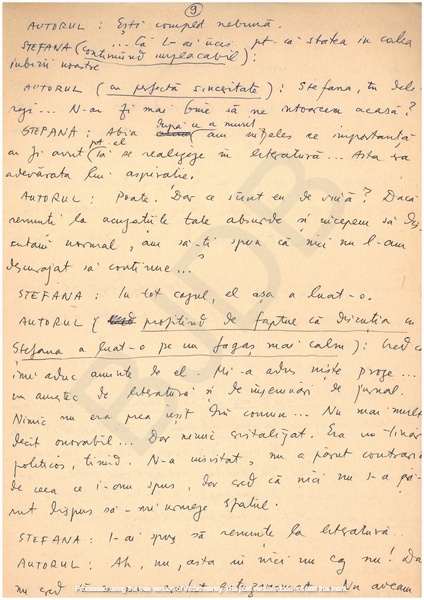 9
AUTORUL : Ești complet nebună.
STEFANA (continuînd implacabil) : ... Că l-ai ucis pt. că statea in calea
iubirii noastre
AUTORUL (cu perfectă sinceritate) : Stefana, tu deli-
rezi... N-ar fi mai bine să ne intoarcem acasă?
STEFANA : Abia după ce a murit am înțeles ce importanță
ar fi avut pt. el să se realizeze în literatură... Asta era
adevărata lui aspirație.
AUTORUL : Poate. Dar ce sunt eu de vină? Dacă
renunti la acuzatiile tale absurde și incepem să dis-
cutăm normal, am să-ți spun că nici nu l-am
descurajat să continue...
STEFANA : In tot cazul, el așa a luat-o.
AUTORUL ( profitînd de faptul că discutia cu
Ștefana a luat-o pe un fagaș mai calm) : Cred că
imi aduc aminte de el. Mi-a adus niște proze...
un amestec de literatură și de însemnări de jurnal.
Nimic nu era prea ieșit din comun... Nu mai mult
decît onorabil... Dar nimic cristalizat. Era un tînăr
politicos, timid. N-a insistat, nu a părut contrariat
de ceea ce i-am spus, dar cred că nici nu s-a pă-
rut dispus să-mi urmeze sfatul.
STEFANA : I-ai spus să renunte la literatură.
AUTORUL : Ah, nu, asta în nici un caz nu! Da
nu cred că
Nu aveam